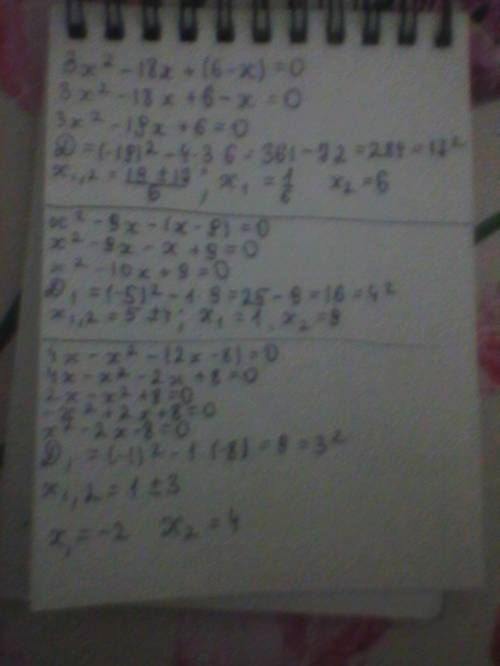 3x² - 18x + (6-x) = 0
3x² - 18x + 6 - x = 0
3x² - 19x + 6 = 0
D = (-19)² - 4·3·6 = 361 - 72 = 289 = 17²
x₁,₂ = (19 ± 17)/6 ; x₁ = 1/6 x₂ = 6
x² - 9x - (x-9) = 0
x² - 9x - x + 9 = 0
x² - 10x + 9 = 0
D₁ = (-5)² - 1·9 = 25 - 9 = 16 = 4²
x₁,₂ = 5 ± 4 ; x₁ = 1, x₂ = 9
4x - x² - (2x-8) = 0
4x - x² - 2x + 8 = 0
2x - x² + 8 = 0
-x² + 2x + 8 = 0
x² - 2x - 8 = 0
D₁ = (-1)² - 1·(-8) = 9 = 3²
x₁,₂ = 1 ± 3
x₁ = -2 x₂ = 4